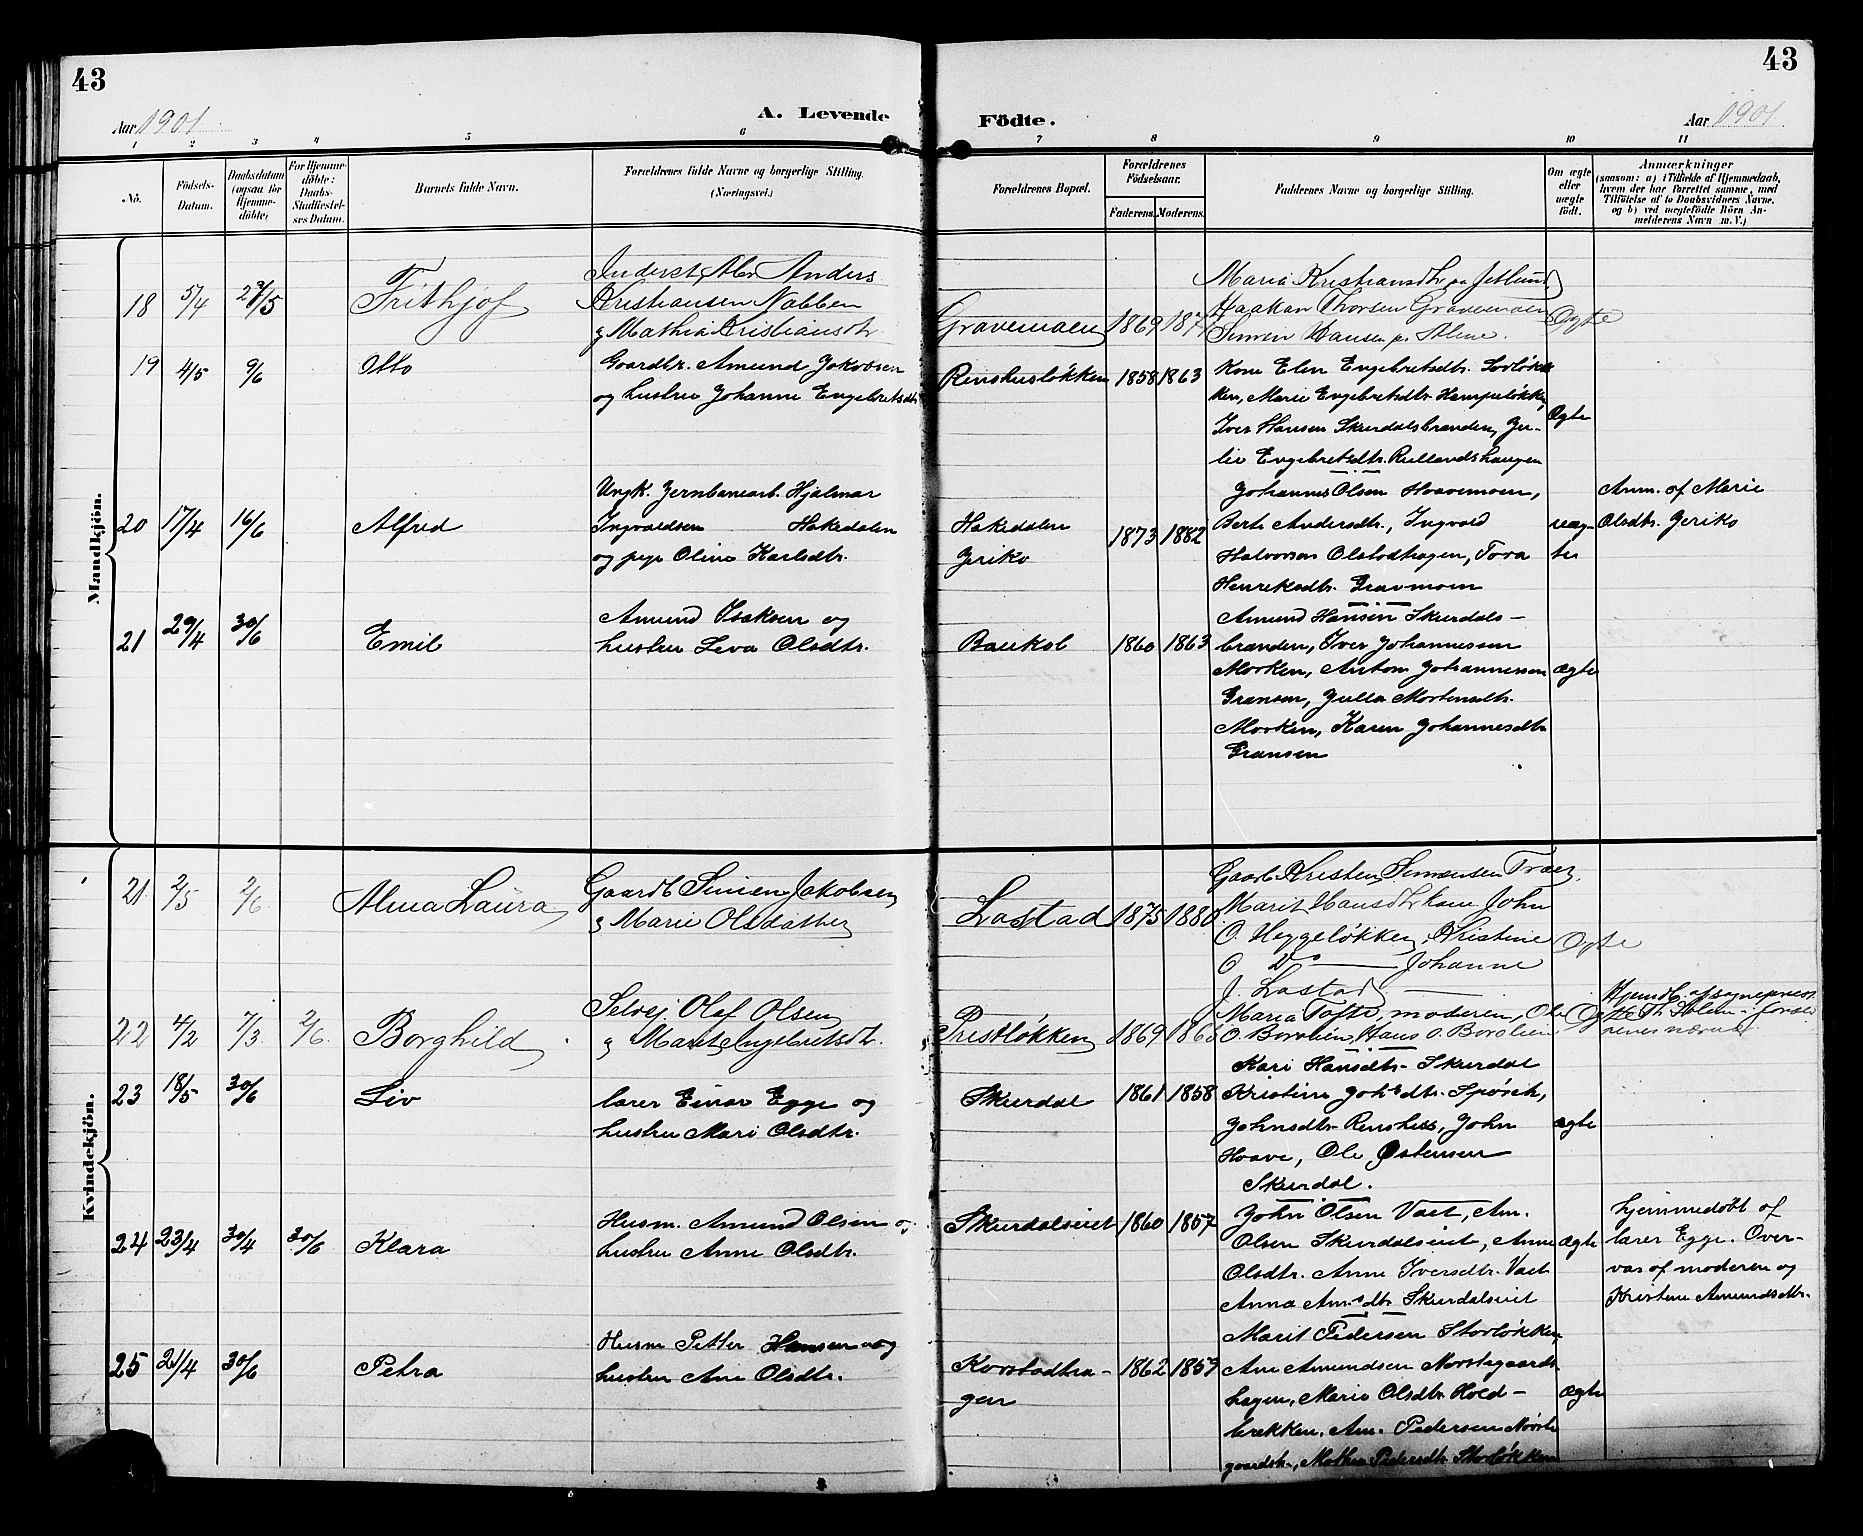 43
43
Aar 1901
A. Levende
Födte.
Aar 1901
1 2 3 4 5 6 7 8 9 10 11
No.
Födsels-
Datum.
Daabsdatum
(ogsaa for
Hjemme-
döbte)
For Hjemme-
döbte:
Daabs-
Stadfæstel-
ses Datum.
Barnets fulde Navn.
Forældrenes fulde Navne og borgerlige Stilling.
(Næringsvei.)
Forældrenes Bopæl.
Forældrenes
Födselsaar.
Faderens. Moderens.
Faddernes Navne og borgerlige Stilling.
Om ægte
eller
uægte
födt.
Anmærkninger
(saasom: a) i Tilfælde af Hjemmedaab,
hvem der har forrettet samme, med
Tilföielse af to Daabsvidners Navne,
og b) ved uægtefödte Börn An-
melderens Navn m. V.)
Mandkjön.
18 5/4 27/5 Frithjof
Anders
Kristiansen Nabben
og Mathia Kristiansdtr
Gravemoen 1869
Maria Kristiansdtr
Haakan Thorsen Gravemoen
Simen Hansen
Ægte
19 4/5 9/6 Otto
Gaardbr. Amund Jakobsen
og hustru Johanne Engebretsdtr
Renshusløkken 1858 1863
Kone Elen Engebretsdtr.
ken, Marie Engebretsdtr Hampeløkken,
Iver Hansen Skurdalsbranden, Ju-
lie Engebretsdtr. Rullandshaugen
Ægte
20 17/4 16/6 Alfred
Ungk. Jernbanearb. Hjalmar
Ingvaldsen Hakedalen
og pige Oline Karlsdtr.
Hakedalen
Jeriko
1873 1882
Johannes Olsen Haavemoen,
Berte Andersdtr., Ingvald
Halvorsen Olstadhagen, Tora
Henriksdtr. Gravmoen
uæg-
te
Anm. af Marie
Olsdtr. Jeriko
21 29/4 30/6 Emil
Amund Isaksen og
hustru Leva Olsdtr.
Baukol 1860 1863
Amund Hansen Skurdals-
branden, Iver Johannessen
Morken, Anton Johannessen
Gransen, Julla Mortensdtr.
Morken, Karen Johannesdtr
Gransen
ægte
Kvindekjön.
21 2/5 2/6 Alma Laura
Gaardb Simen Jakobsen
og Marie Olsdatter
Lostad 1875 1880
Kristen Simensen
Marit Hansdtr kone John
O. Heggeløkken, Kristine
O Do — Johanne
J. Lostad —
Ægte
22 4/2 7/3 2/6 Borghild
Selvej. Olaf Olsen
og Marit Engebretsdtr.
Prestløkken 1869
Maria Tofte, moderen, Ole
O. Borolien, Hans O. Borolien
Ægte
Hjemdb. af sogneprest
23 18/5 30/6 Liv
lærer Einar Egge og
hustru Mari Olsdtr.
Skurdal 1861 1858
Kari Hansdtr. Skurdal
Kristine Johsdtr.
Johnsdtr. Renshus, John
Haave, Ole Østensen
Skurdal.
ægte
24 23/4 30/4 30/6 Klara
Husm. Amund Olsen og
hustru Anne Olsdtr.
Skurdalseiet 1860 1857
John Olsen Vaet, Am.
Olsen Skurdalseiet, Anne
Olsdtr. Anne Iversdtr. Vaet
Anna Amsdtr Skurdalseiet
ægte
hjemmedøbt af
lærer Egge. Over-
var af moderen og
Kristine Amundsdtr.
25 21/4 30/6 Petra
Husm Petter Hansen og
hustru Ane Olsdtr.
Korstadha-
gen
1862 1859
Marit Pedersen Storløkken
Ane Amundsen Norstegaards-
hagen, Marie Olsdtr. Hold-
brekken, Am. Pedersen Norste
gaardsh., Mathea Pedersdtr Storløkken
ægte